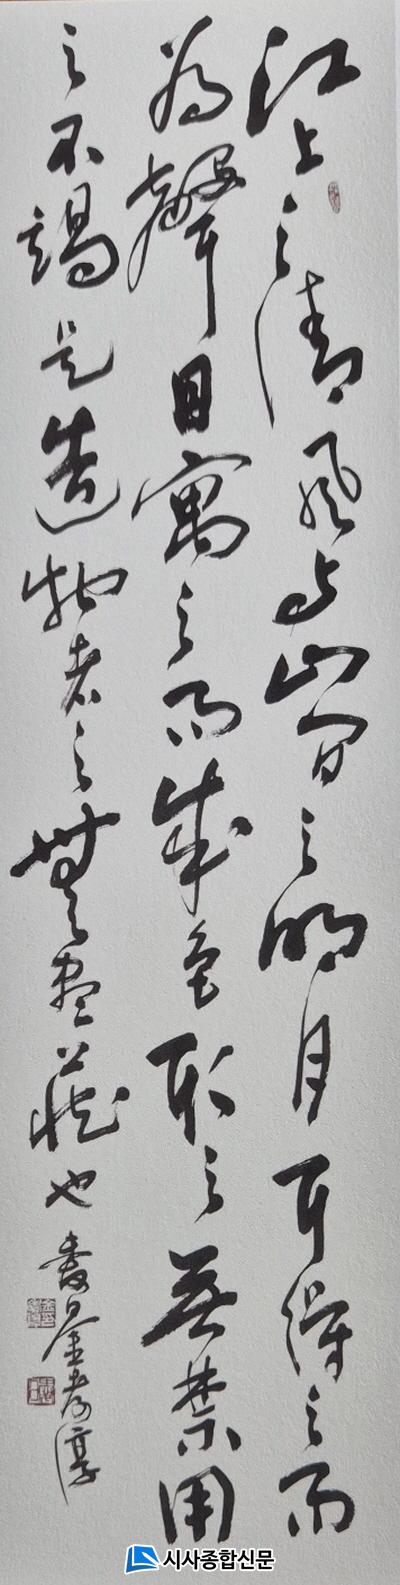 江上之清風与山間之明月耳得之而
為聲目寓之而成色取之無禁用
之不竭是造物者之無盡藏也
시사종합신문